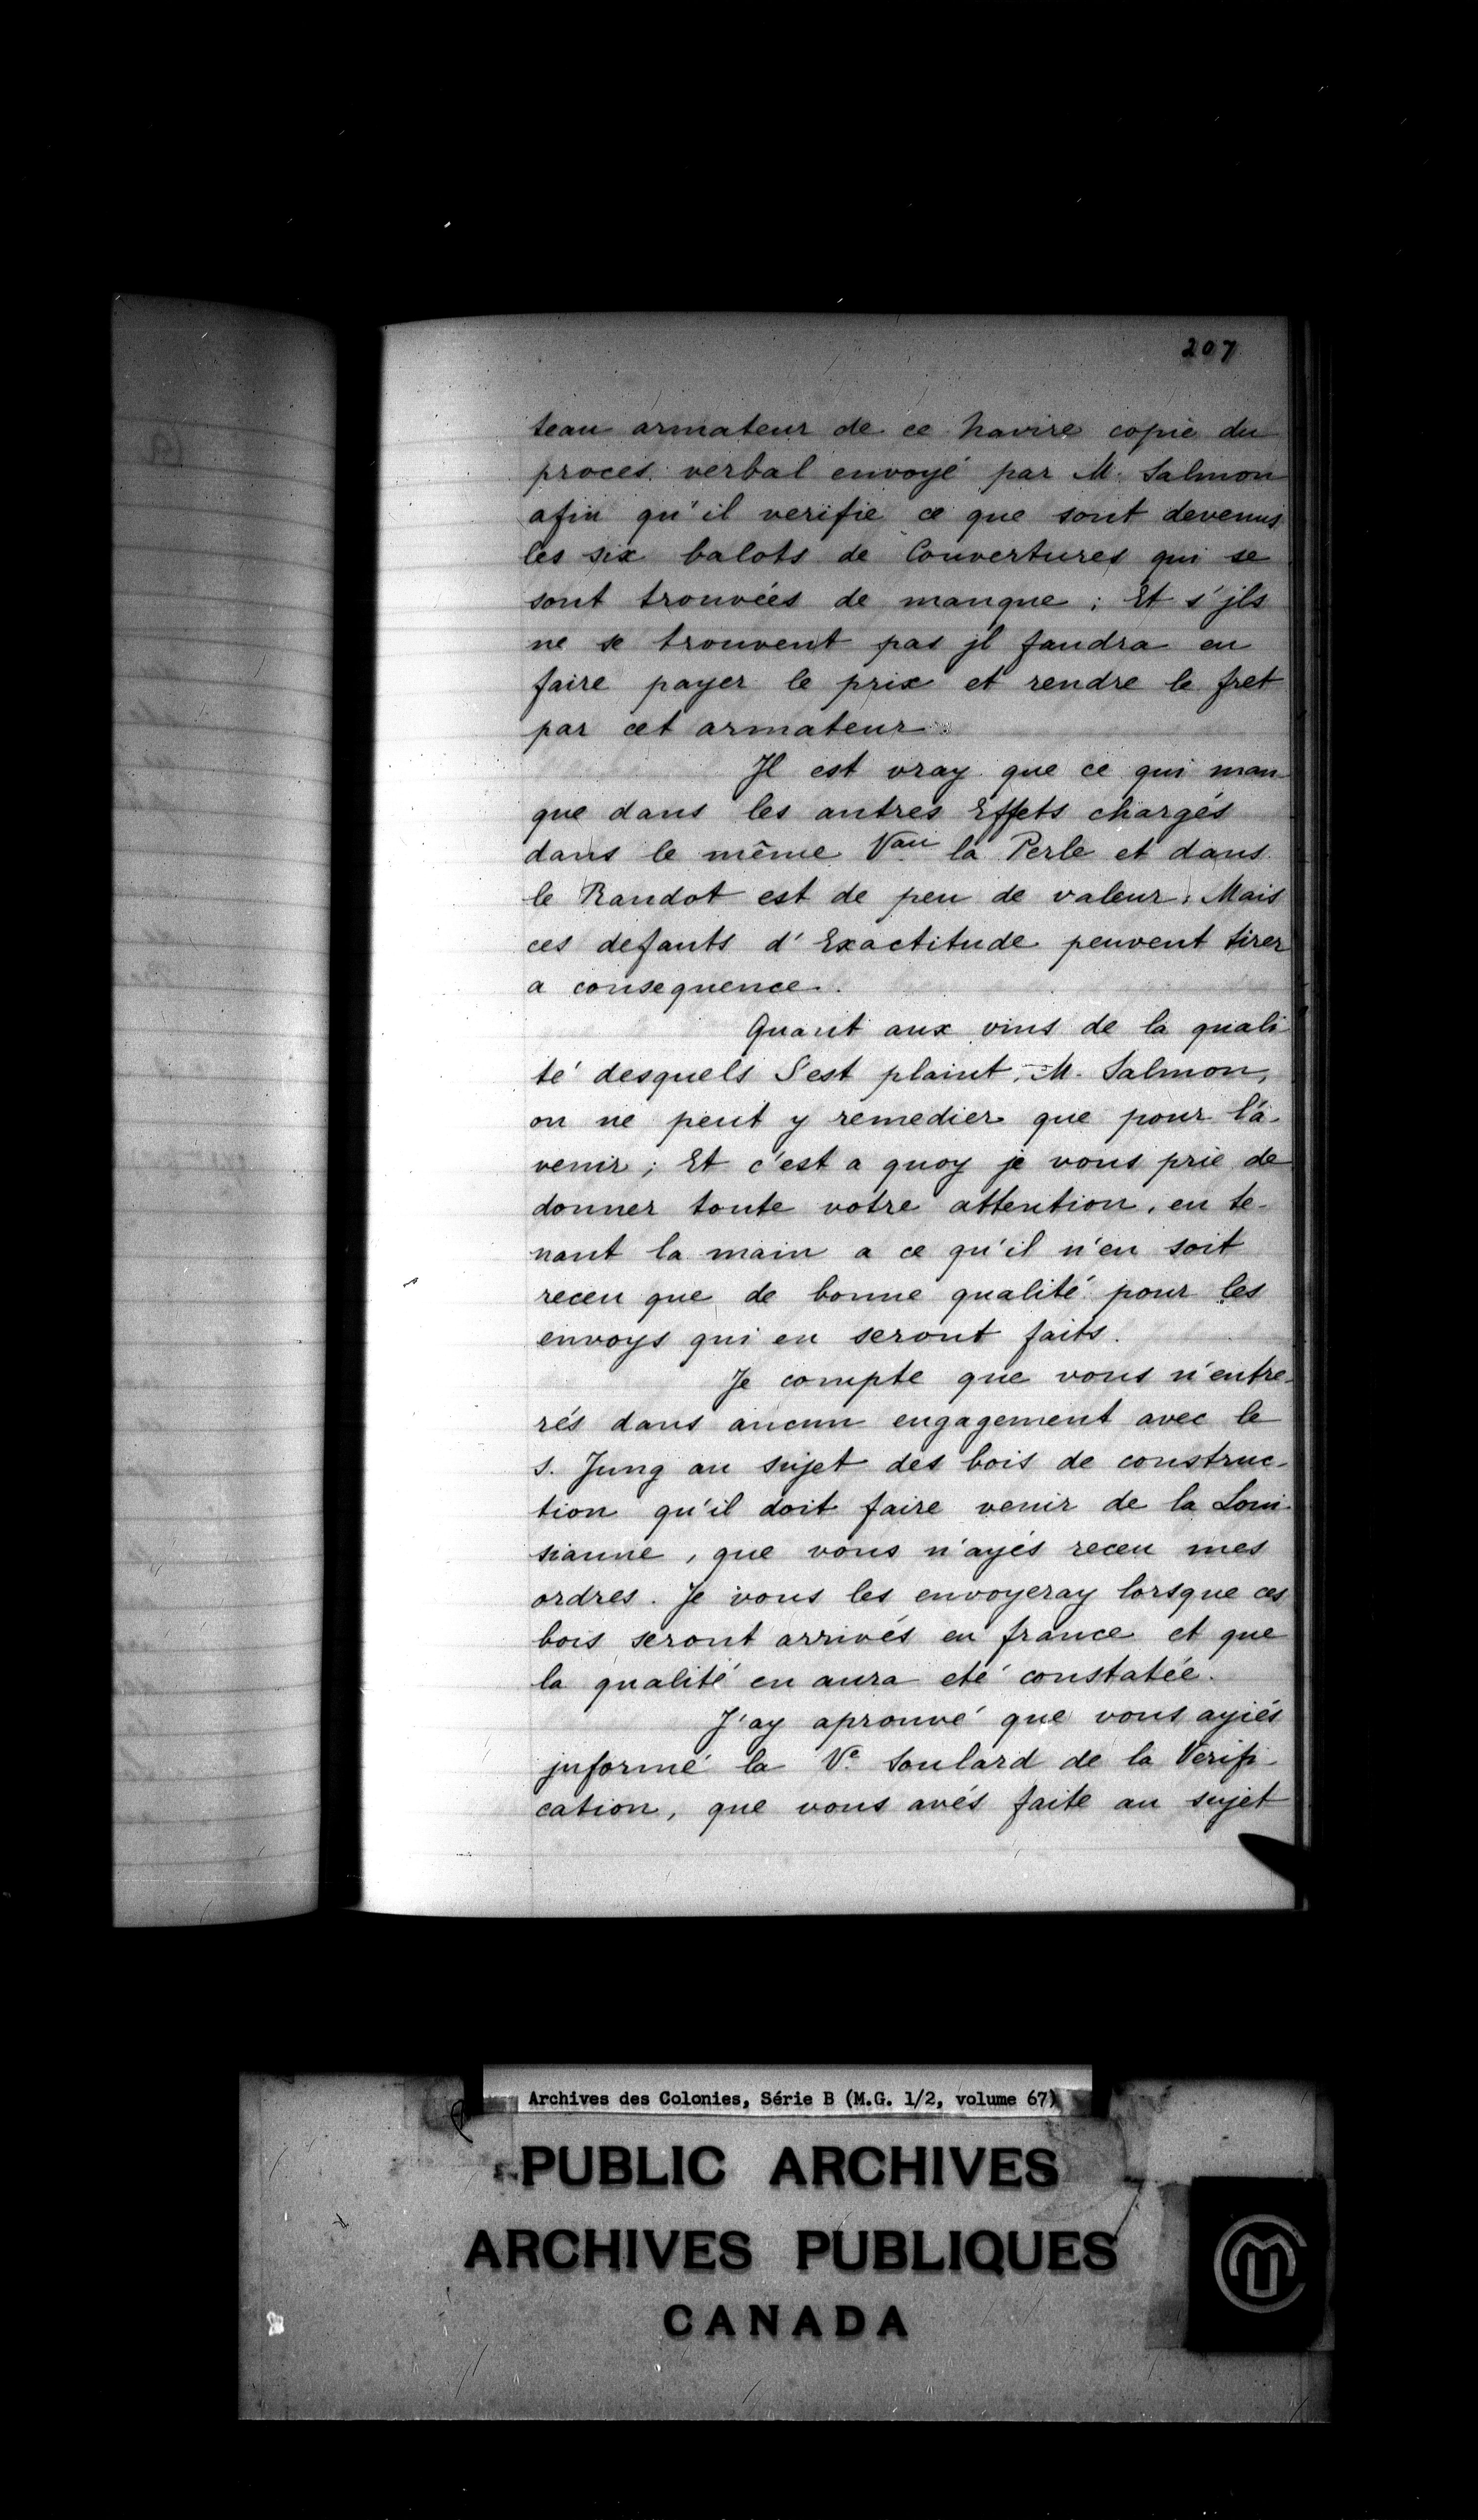 207
teau armateur de ce Navire copie du
proces verbal envoyé par M. Salmon
afin qu'il verifie ce que sont devenus
les six balots de Couvertures qui se
sont trouvées de manque ; Et s'jls
ne se trouvent pas jl faudra en
faire payer le prix et rendre le fret
par cet armateur.
Jl est vray que ce qui man-
que dans les autres Effets chargés
dans le même Vau la Perle et dans
le Raudot est de peu de valeur ; Mais
ces defauts d'Exactitude peuvent tirer
a consequence.
Quant aux vins de la quali
té desquels S'est plaint, M. Salmon,
on ne peut y remedier que pour l'a-
venir ; Et c'est a quoy je vous prie de
donner toute votre attention, en te-
nant la main a ce qu'il n'en soit
receu que de bonne qualité pour les
envoys qui en seront faits.
Je compte que vous n'entre-
rés dans aucun engagement avec le
s. Jung au sujet des bois de construc-
tion qu'il doit faire venir de la Loui-
sianne, que vous n'ayés receu mes
ordres. Je vous les envoyeray lorsque ces
bois seront arrivés en france et que
la qualité en aura eté constatée.
J'ay aprouvé que vous ayiés
jnformé la Ve. Soulard de la Verifi-
cation, que vous avés faite au sujet
Archives des Colonies, Série B (M.G. 1/2, volume 67)
PUBLIC ARCHIVES
ARCHIVES PUBLIQUES
CANADA